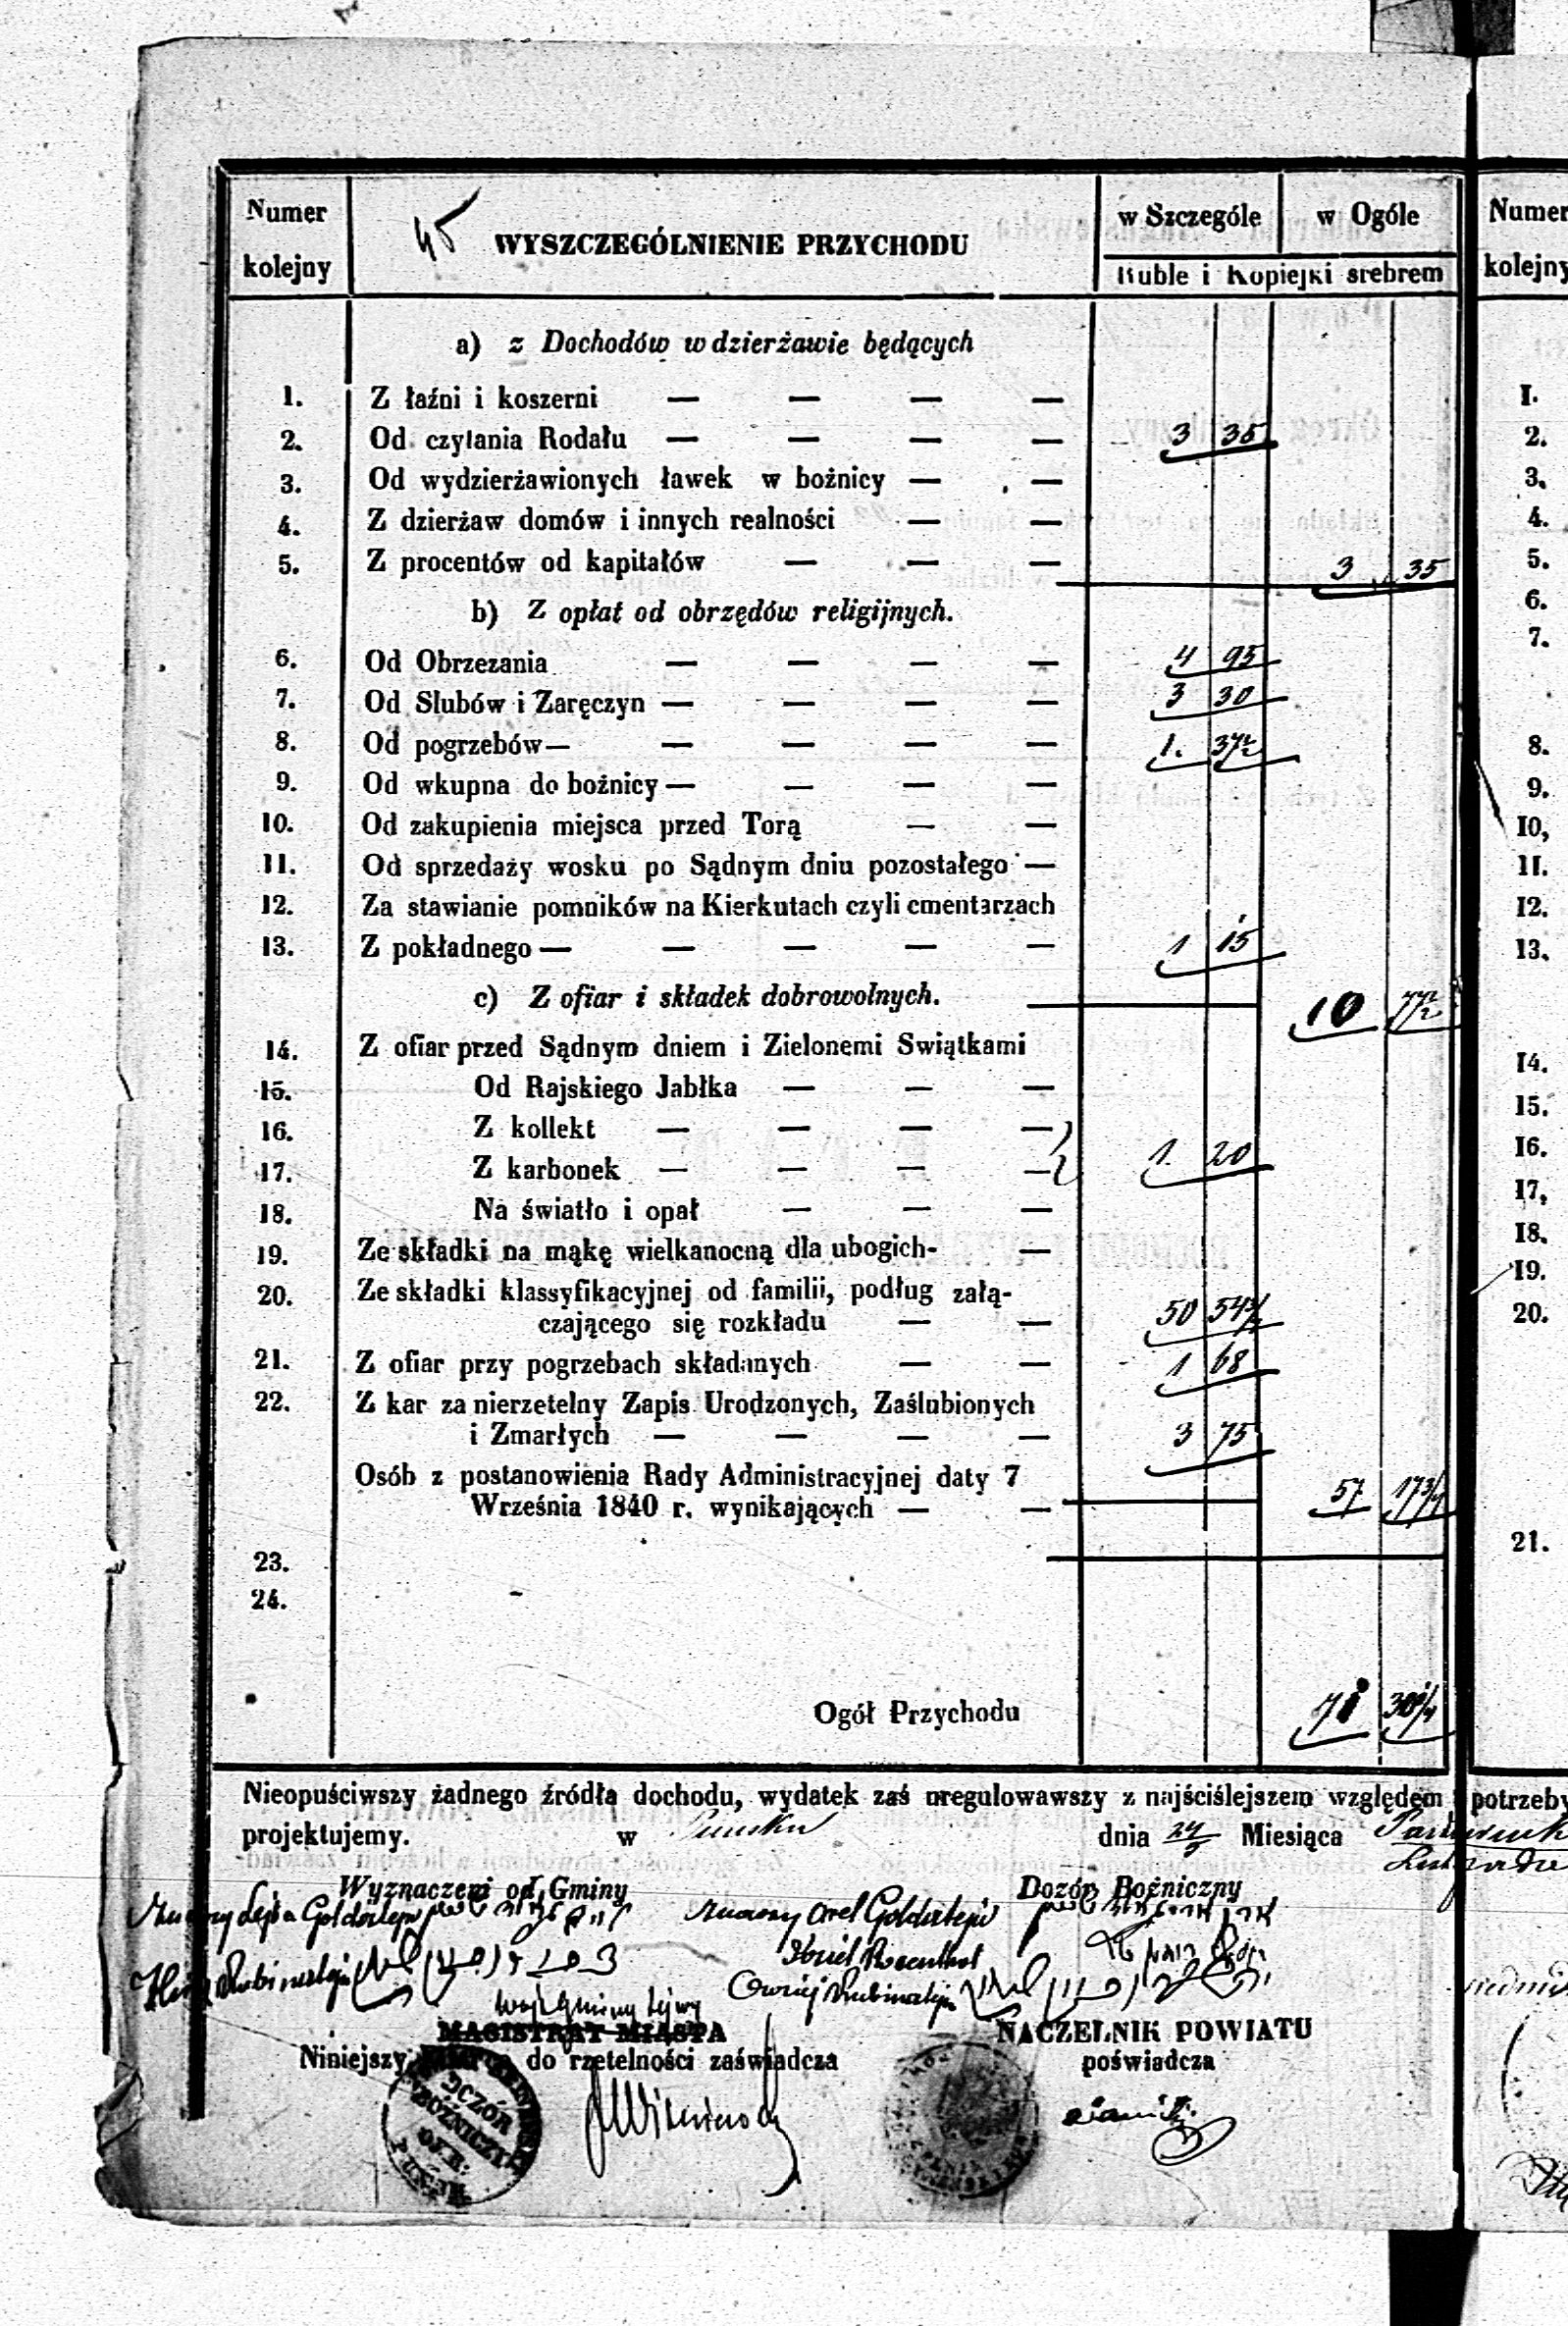 45
Numer kolejny
WYSZCZEGÓLNIENIE PRZYCHODU
w Szczególe
w Ogóle
Ruble i Kopiejki srebrem
a) z Dochodów w dzierżawie będących
1. Z łaźni i koszerni — — — —
2. Od czytania Rodału — — — — 3 35
3. Od wydzierżawionych ławek w bożnicy — —
4. Z dzierżaw domów i innych realności — —
5. Z procentów od kapitałów — — — 3 35
b) Z opłat od obrzędów religijnych.
6. Od Obrzezania — — — — 4 95
7. Od Slubów i Zaręczyn — — — — 3 30
8. Od pogrzebów — — — — — 1. 37½
9. Od wkupna do bożnicy — — — —
10. Od zakupienia miejsca przed Torą — —
11. Od sprzedaży wosku po Sądnym dniu pozostałego —
12. Za stawianie pomników na Kierkutach czyli cmentarzach
13. Z pokładnego — — — — — 1 15
c) Z ofiar i składek dobrowolnych.
10 77½
14. Z ofiar przed Sądnym dniem i Zielonemi Swiątkami
15. Od Rajskiego Jabłka — — —
16. Z kollekt — — — —
17. Z karbonek — — — — 1. 20
18. Na światło i opał — — —
19. Ze składki na mąkę wielkanocną dla ubogich- —
20. Ze składki klassyfikacyjnej od familii, podług załą-
czającego się rozkładu — — 50 54¾
21. Z ofiar przy pogrzebach składanych — — 1 68
22. Z kar za nierzetelny Zapis Urodzonych, Zaślubionych
i Zmarłych — — — — 3 75
Osób z postanowienia Rady Administracyjnej daty 7
Września 1840 r. wynikających — — 57 17¾
23.
24.
Ogół Przychodu 71 30¼
Nieopuściwszy żadnego źródła dochodu, wydatek zaś uregulowawszy z najściślejszem względem potrzeby
projektujemy. w Puńsku dnia Miesiąca
Wyznaczeni od Gminy
Dozór Bożniczny
Lejba Goldsztejn
Orel Goldsztejn
Rosenthal
Rubinsztejn
Rubinsztejn
Wójt Gminy Lejwy
MAGISTRAT MIASTA
NACZELNIK POWIATU
Niniejszy do rzetelności zaświadcza
poświadcza
DOZÓR
BÓŻNICZY
OKR:
Numer kolejny
1.
2.
3.
4.
5.
6.
7.
8.
9.
10,
11.
12.
13.
14.
15.
16.
17,
18.
19.
20.
21.